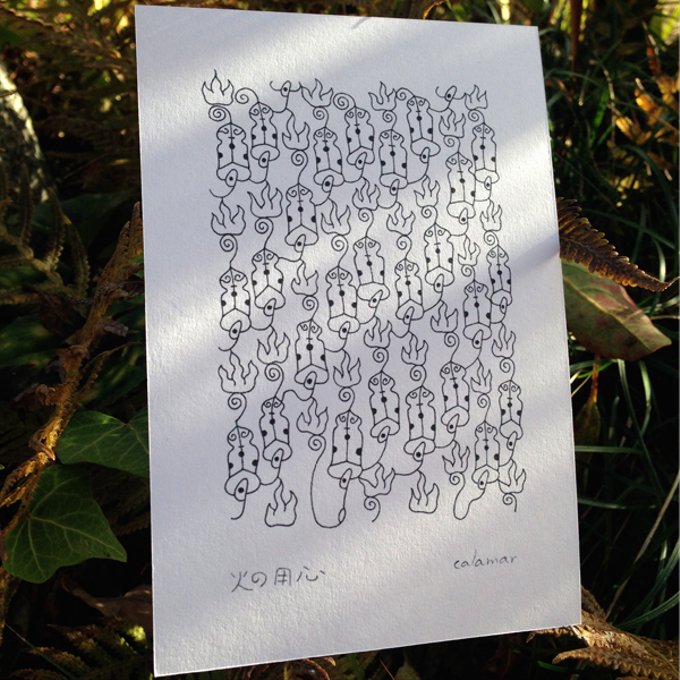 火の用心
calamar